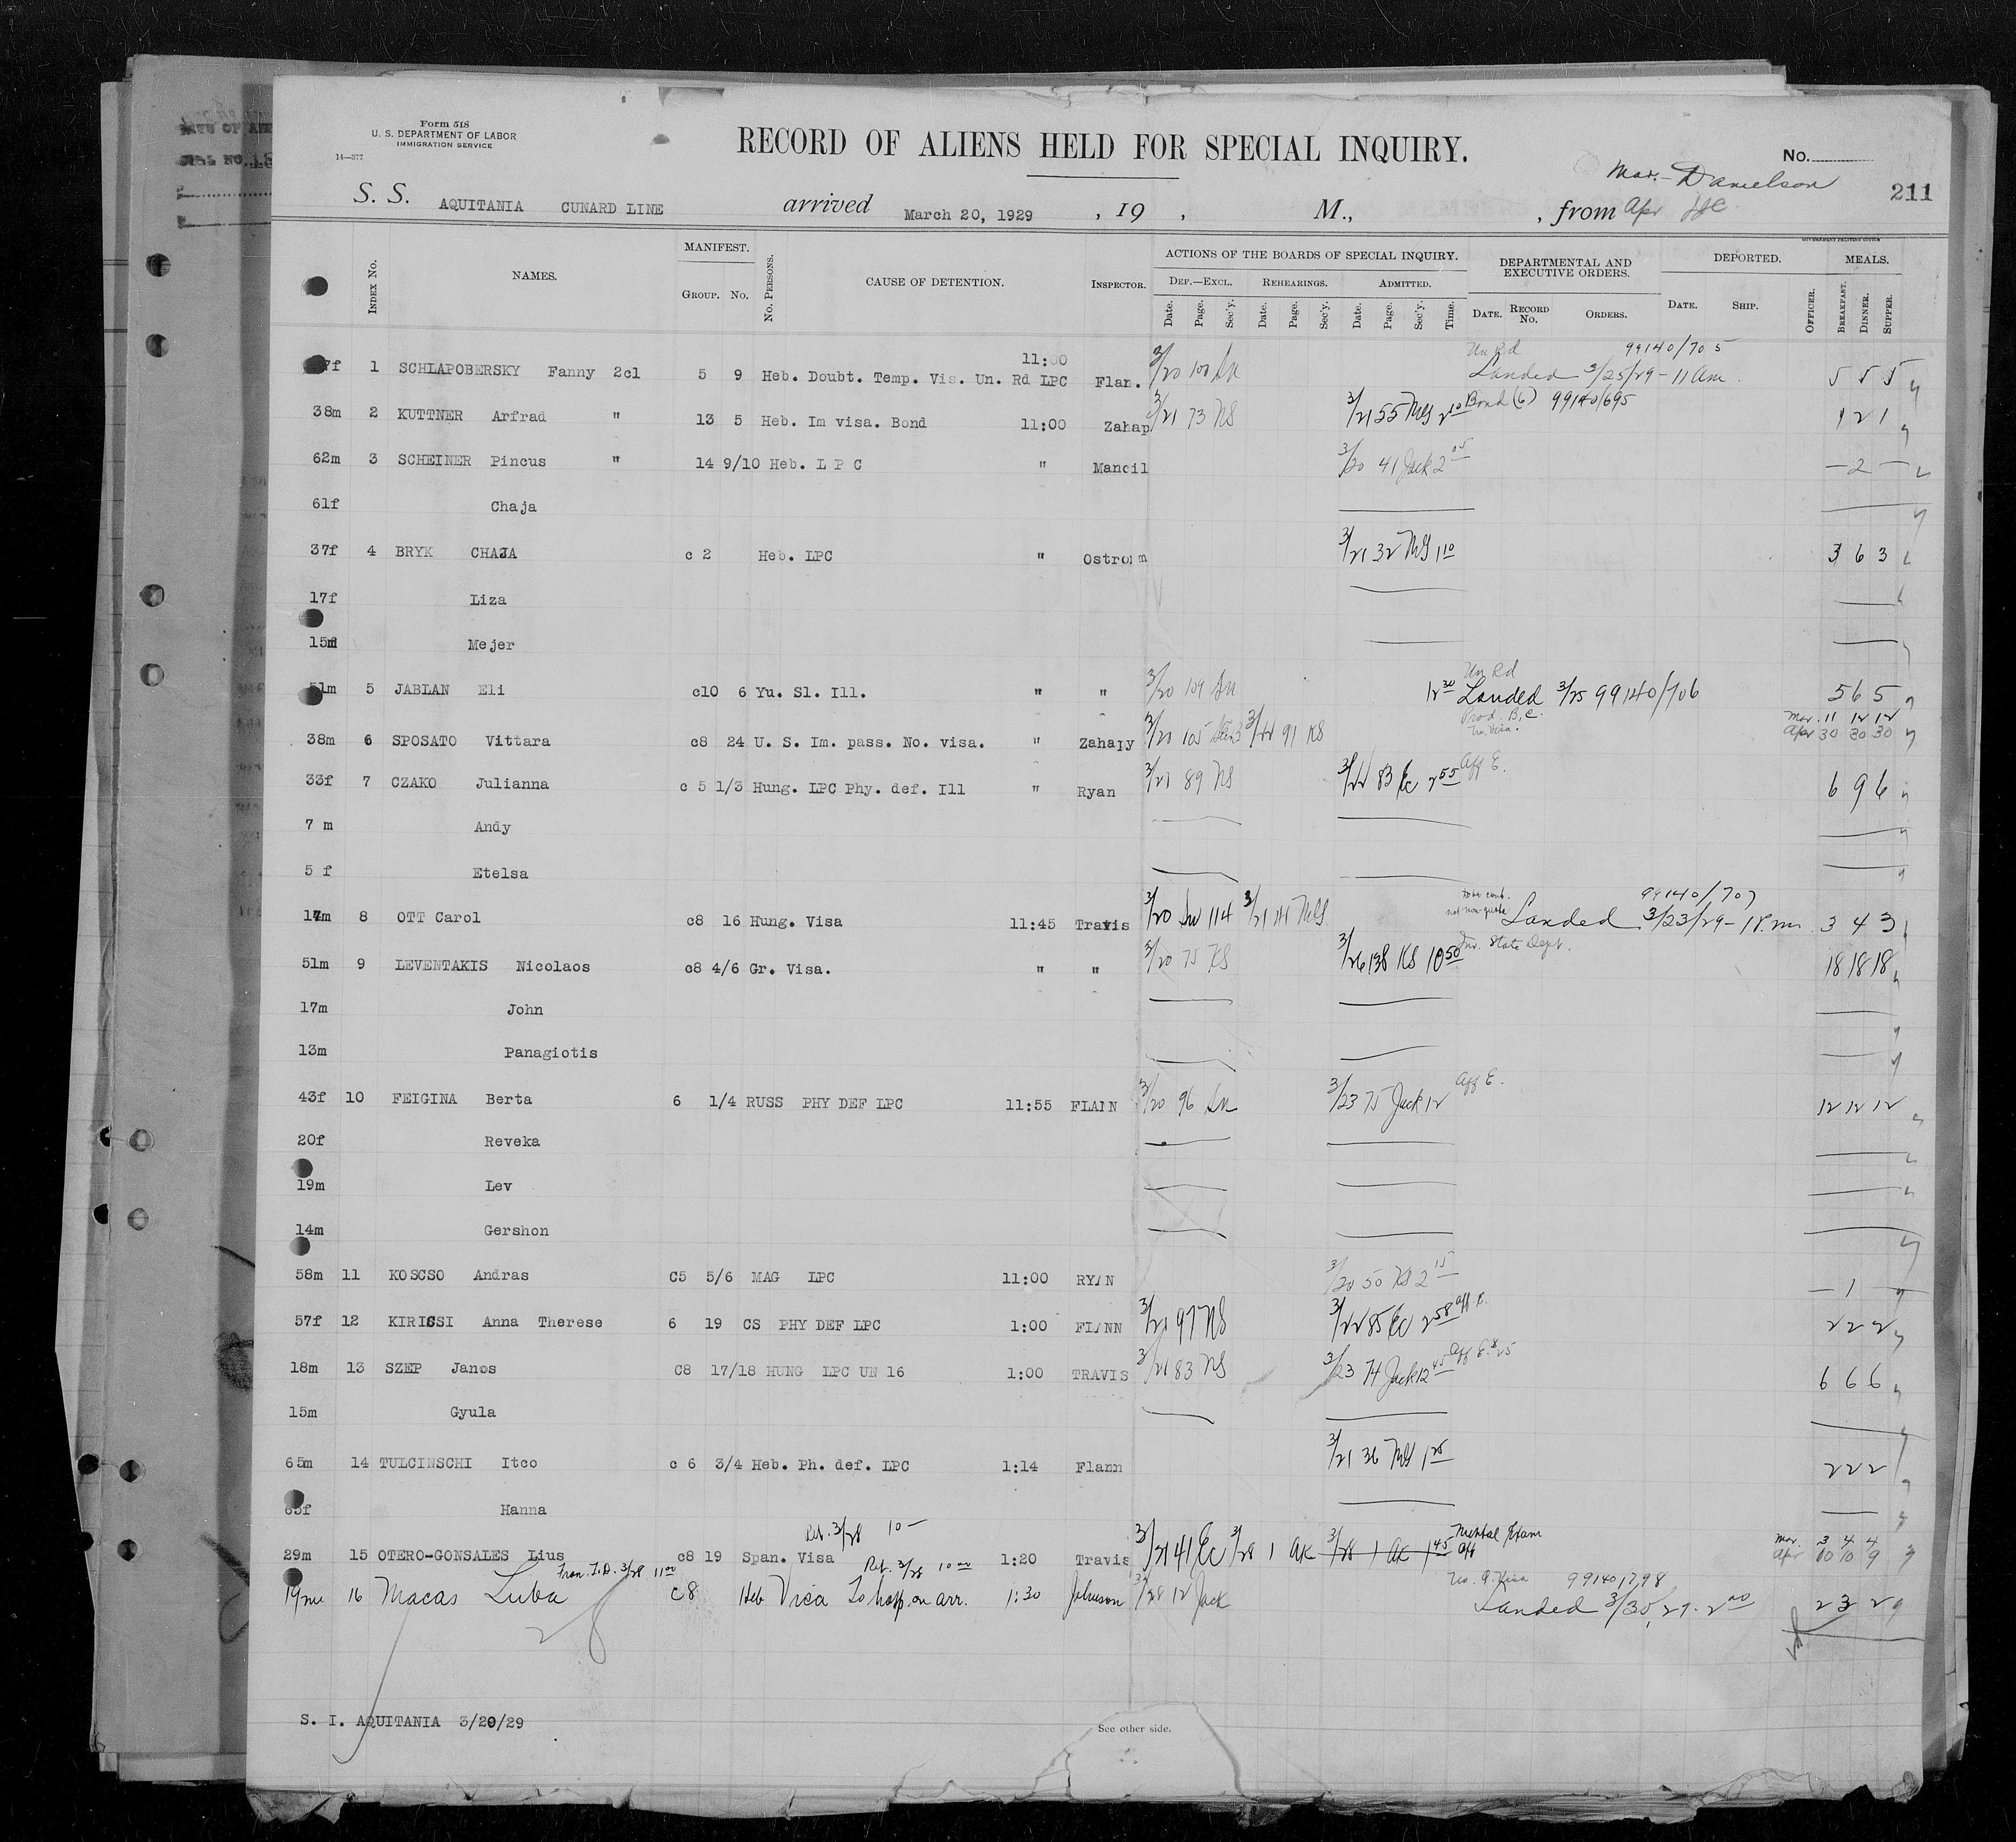 Form 518
U. S. DEPARTMENT OF LABOR
IMMIGRATION SERVICE
14—377
RECORD OF ALIENS HELD FOR SPECIAL INQUIRY.
No.
Mar. - Danielson
211
S. S. AQUITANIA CUNARD LINE arrived March 20, 1929 , 19 , M., , from Apr
GOVERNMENT PRINTING OFFICE
INDEX NO. NAMES. MANIFEST. GROUP. NO. NO. PERSONS. CAUSE OF DETENTION. INSPECTOR. ACTIONS OF THE BOARDS OF SPECIAL INQUIRY. DEPARTMENTAL AND EXECUTIVE ORDERS. DEPORTED. MEALS.
DEF.—EXCL. REHEARINGS. ADMITTED.
Date. Page. Sec'y. Date. Page. Sec'y. Date. Page. Sec'y. Time. DATE. RECORD NO. ORDERS. DATE. SHIP. OFFICER. BREAKFAST. DINNER. SUPPER.
Un Rd 99140/705
11:00
7f 1 SCHLAPOBERSKY Fanny 2cl 5 9 Heb. Doubt. Temp. Vis. Un. Rd LPC Flan. 3/20 100 Landed 3/25/29 - 11 am. 5 5 5
38m 2 KUTTNER Arfrad " 13 5 Heb. Im visa. Bond 11:00 Zahap 3/21 73 NS 3/21 55 MG 2 10 Bond (6) 99140/695 1 2 1
62m 3 SCHEINER Pincus " 14 9/10 Heb. L P C " Mancil 3/20 41 Jack 2 05 — 2 —
61f Chaja
37f 4 BRYK CHAJA c 2 Heb. LPC " Ostrom 3/21 32 MG 1 10 3 6 3
17f Liza
15m Mejer
Un Rd
51m 5 JABLAN Eli c10 6 Yu. Sl. Ill. " " 3/20 109 12 30 Landed 3/25 99140/706 5 6 5
Mar. 11 12 12
38m 6 SPOSATO Vittara c8 24 U. S. Im. pass. No. visa. " Zahapy 3/20 105 3/22 91 KS Apr 30 30 30
33f 7 CZAKO Julianna c 5 1/3 Hung. LPC Phy. def. Ill " Ryan 3/21 89 NS 3/22 83 Ec 2 55 Aff E. 6 9 6
7 m Andy
5 f Etelsa
99140/707
14m 8 OTT Carol c8 16 Hung. Visa 11:45 Travis 3/20 114 3/21 44 MG not non-quota Landed 3/23/29 - 1 P.m. 3 4 3
51m 9 LEVENTAKIS Nicolaos c8 4/6 Gr. Visa. " " 3/20 75 KS 3/26 138 KS 10 50 State Dept. 18 18 18
17m John
13m Panagiotis
43f 10 FEIGINA Berta 6 1/4 RUSS PHY DEF LPC 11:55 FLANN 3/20 96 3/23 75 Jack 12 Aff E. 12 12 12
20f Reveka
19m Lev
14m Gershon
58m 11 KOSCSO Andras C5 5/6 MAG LPC 11:00 RYAN 3/20 50 KS 2 15 — 1 —
57f 12 KIRICSI Anna Therese 6 19 CS PHY DEF LPC 1:00 FLANN 3/21 97 NS 3/22 85 Ec 2 58 Aff. E. 2 2 2
18m 13 SZEP Janos C8 17/18 HUNG LPC UN 16 1:00 TRAVIS 3/21 83 NS 3/23 74 Jack 12 45 Aff E. 6 6 6
15m Gyula
65m 14 TULCINSCHI Itco c 6 3/4 Heb. Ph. def. LPC 1:14 Flann 3/21 36 MG 1 25 2 2 2
65f Hanna
Ret. 3/28 10 — Mental Exam Mar. 3 4 4
29m 15 OTERO-GONSALES Lius c8 19 Span. Visa 1:20 Travis 3/21 41 Ec 3/28 1 AK 3/28 1 AK 1 45 Aff Apr 10 10 9
Tran. I.D. 3/28 11 00 Ret. 3/28 10 00 99140/798
19m 16 Macas Luba c8 Heb Visa To hosp. on arr. 1:30 Johnson 3/28 12 Jack Landed 3/30/29. 2 00 2 3 2
S. I. AQUITANIA 3/20/29
See other side.